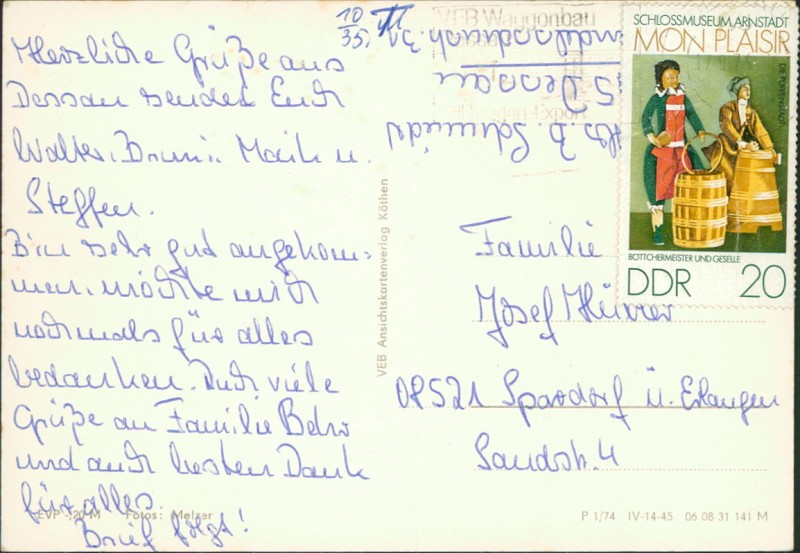 Herzliche Grüße aus
Dessau senden Euch
Walter, Maik u.
Steffen.
Bin sehr gut angekom=
men, möchte mich
nochmals für alles
bedanken. Auch viele
Grüße an Familie Behr
und auch besten Dank
für alles
Brief folgt!
EVP -,20 M Fotos: Melzer
VEB Ansichtskartenverlag Köthen
10
35
VEB Waggonbau
Abs. B. Schmidt
45 Dessau
31
SCHLOSSMUSEUM, ARNSTADT
MON PLAISIR
DIE PUPPENSTADT
BÖTTCHERMEISTER UND GESELLE
DDR 20
Familie
Josef
08521 Spardorf ü. Erlangen
Sandstr. 4
P 1/74 IV-14-45 06 08 31 141 M